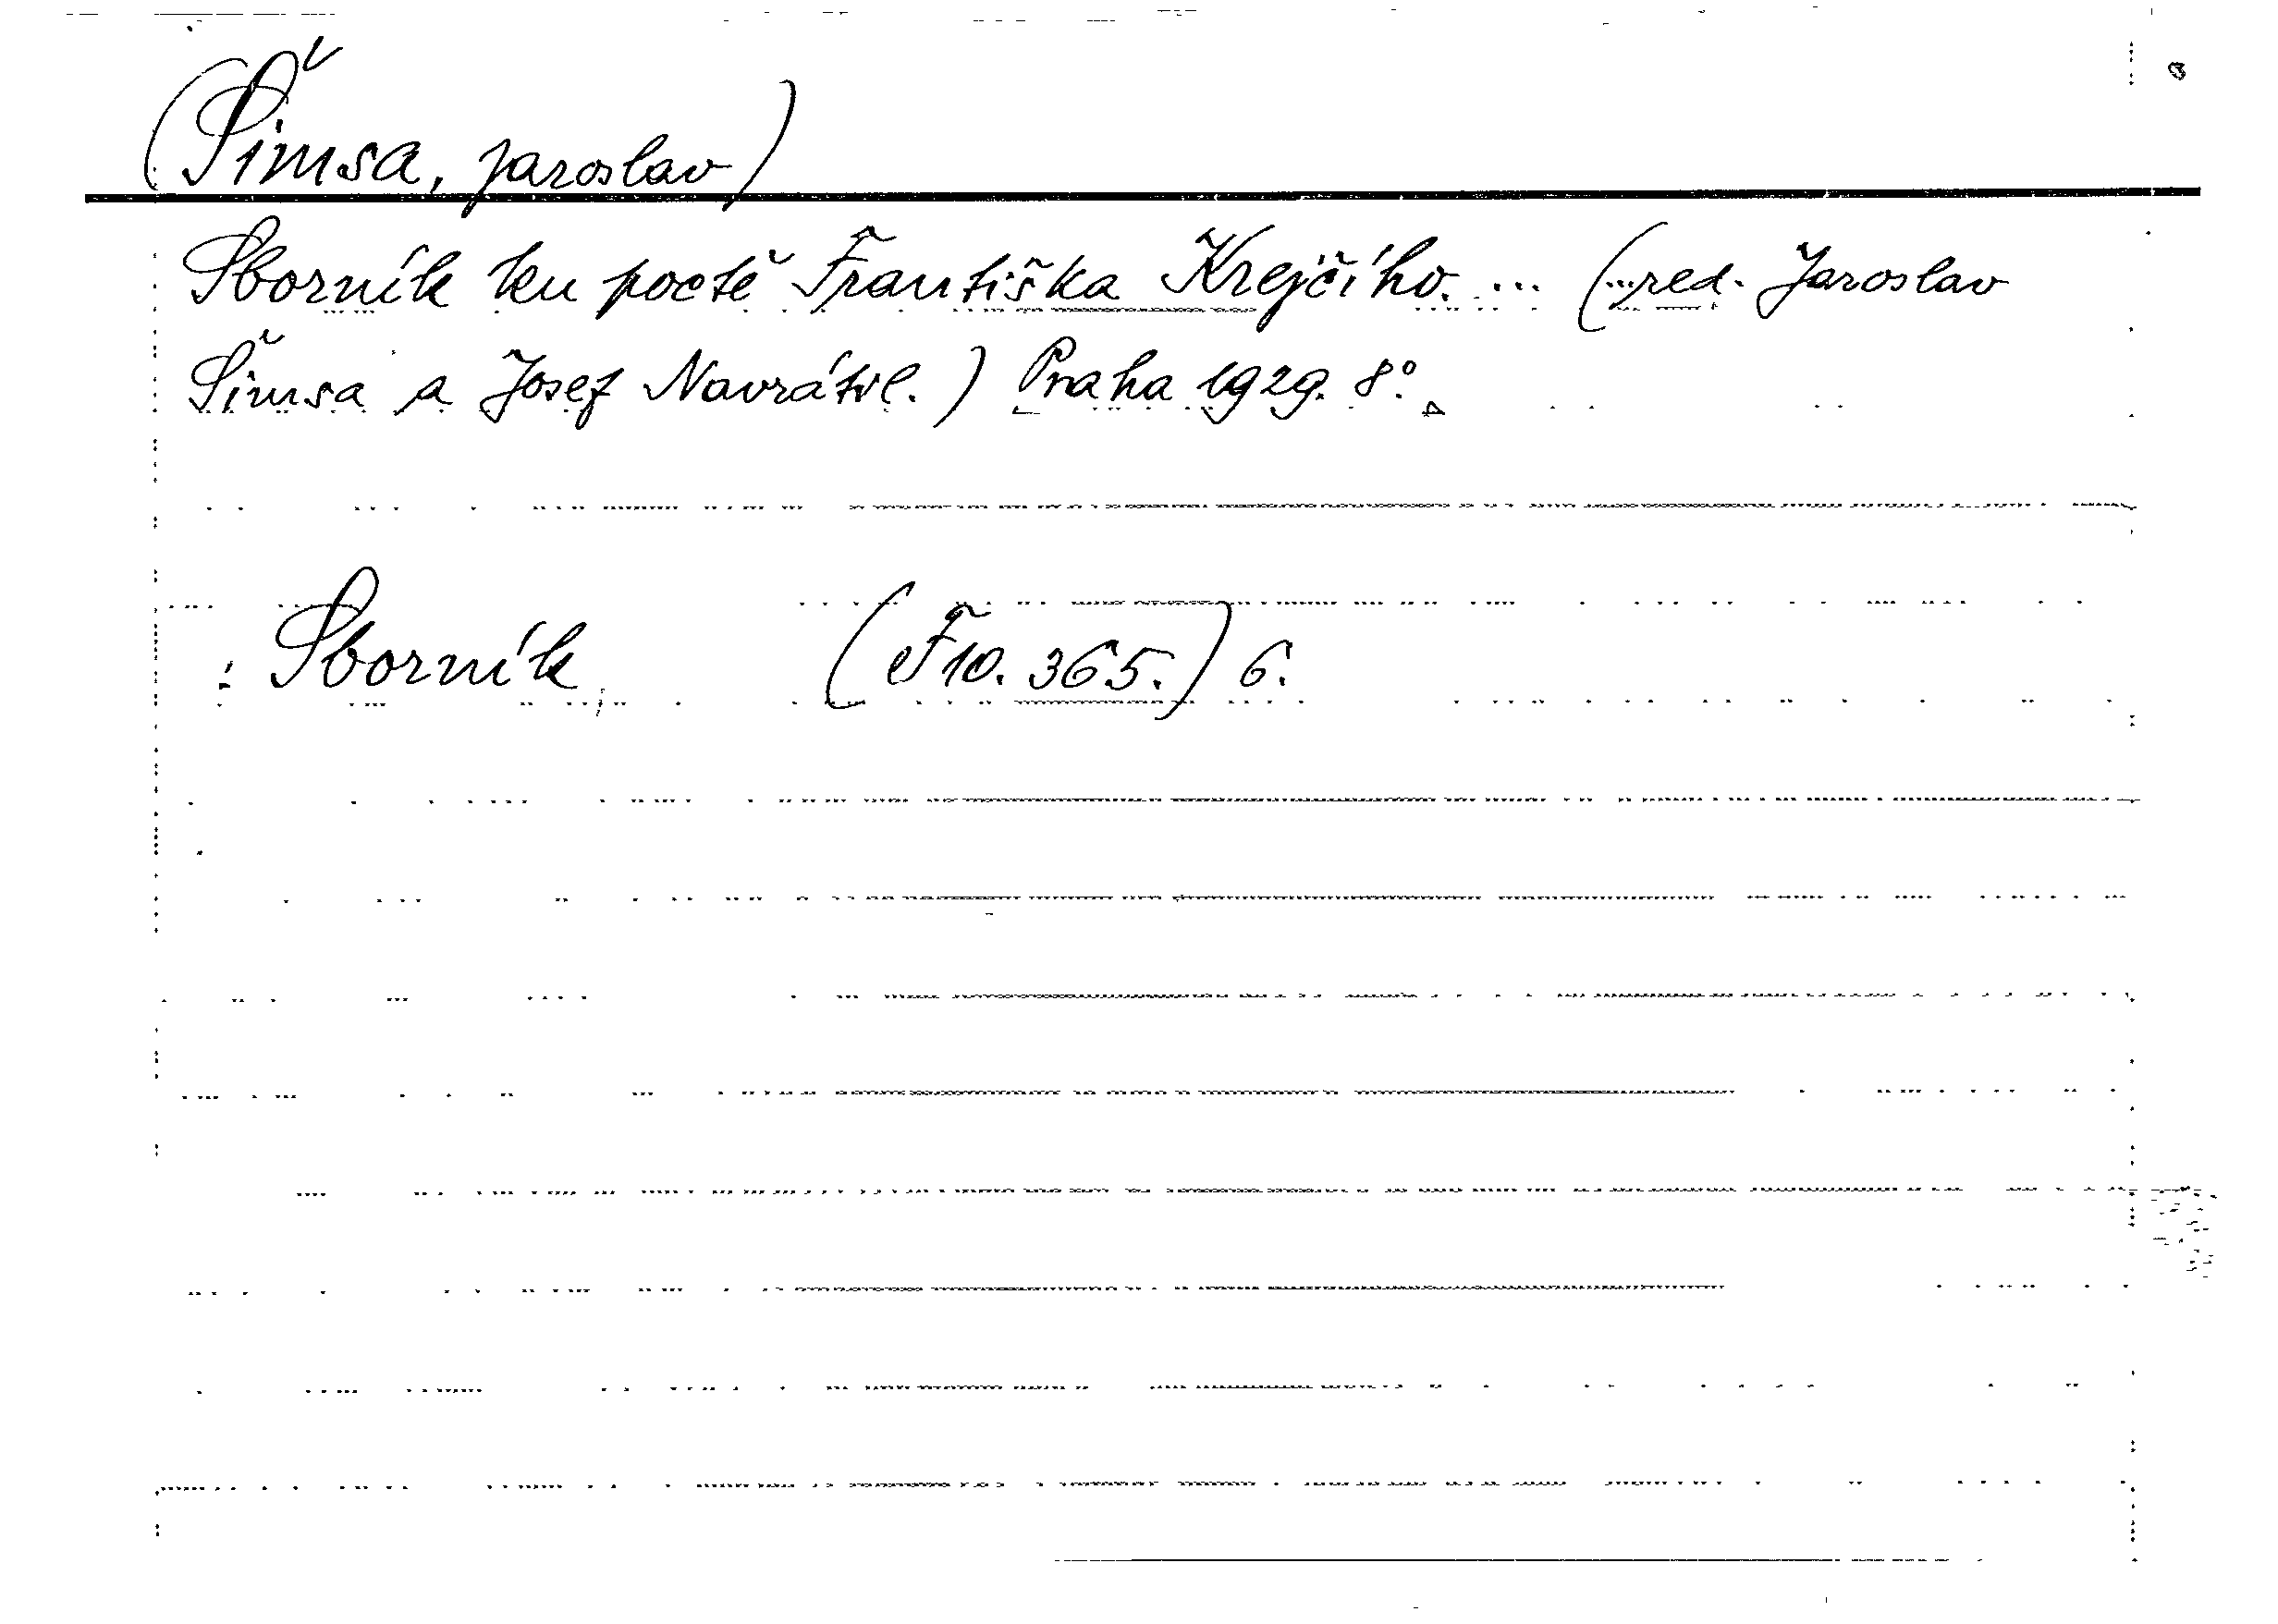 (Šimsa, Jaroslav)
Sborník ku poctě Františka Krejčího. ... (...red. Jaroslav
Šimsa a Josef Navrátil.) Praha 1929. 8°.
: Sborník (F 10. 365.) 6.